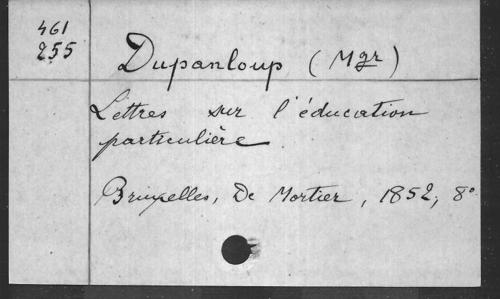 461
255
Dupanloup (Mgr)
Lettres sur l'éducation
particulière
Bruxelles, De Mortier, 1852, 8°